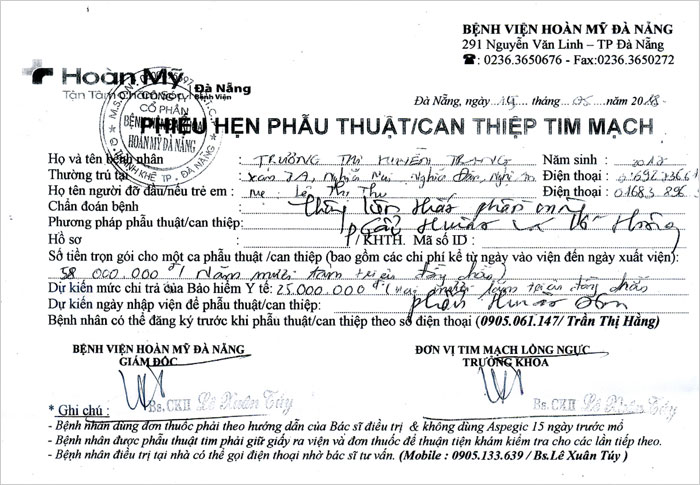 BỆNH VIỆN HOÀN MỸ ĐÀ NẴNG
291 Nguyễn Văn Linh – TP Đà Nẵng
☎: 0236.3650676 - Fax:0236.3650272
Hoàn Mỹ Đà Nẵng
Tận Tâm Bệnh Viện
CỔ PHẦN
BỆNH VIỆN
HOÀN MỸ ĐÀ NẴNG
Q. THANH KHÊ - TP. ĐÀ NẴNG
Đà Nẵng, ngày tháng 05 năm 2018
PHIẾU HẸN PHẪU THUẬT/CAN THIỆP TIM MẠCH
Họ và tên bệnh nhân : TRƯƠNG THỊ HUYỀN TRANG Năm sinh : 2017
Thường trú tại : Xóm 7A, Nghĩa Đàn, Điện thoại :
Họ tên người đỡ đầu/nếu trẻ em : mẹ: Lê Thị Thu Điện thoại :
Chẩn đoán bệnh :
Phương pháp phẫu thuật/can thiệp:
Hồ sơ : /KHTH. Mã số ID :
Số tiền trọn gói cho một ca phẫu thuật /can thiệp (bao gồm các chi phí kể từ ngày vào viện đến ngày xuất viện):
58 000.000 đ/ Năm mươi tám triệu đồng chẵn)
Dự kiến mức chi trả của Bảo hiểm Y tế: 25.000.000 đ (hai mươi lăm triệu đồng chẵn
Dự kiến ngày nhập viện để phẫu thuật/can thiệp:
Bệnh nhân có thể đăng ký trước khi phẫu thuật/can thiệp theo số điện thoại (0905.061.147/ Trần Thị Hằng)
BỆNH VIỆN HOÀN MỸ ĐÀ NẴNG ĐƠN VỊ TIM MẠCH LỒNG NGỰC
GIÁM ĐỐC TRƯỞNG KHOA
Bs.CKII Lê Xuân Túy Bs.CKII Lê Xuân Túy
* Ghi chú :
- Bệnh nhân dùng đơn thuốc phải theo hướng dẫn của Bác sĩ điều trị & không dùng Aspegic 15 ngày trước mổ
- Bệnh nhân được phẫu thuật tim phải giữ giấy ra viện và đơn thuốc để thuận tiện khám kiểm tra cho các lần tiếp theo.
- Bệnh nhân điều trị tại nhà có thể gọi điện thoại nhờ bác sĩ tư vấn. (Mobile : 0905.133.639 / Bs.Lê Xuân Túy )